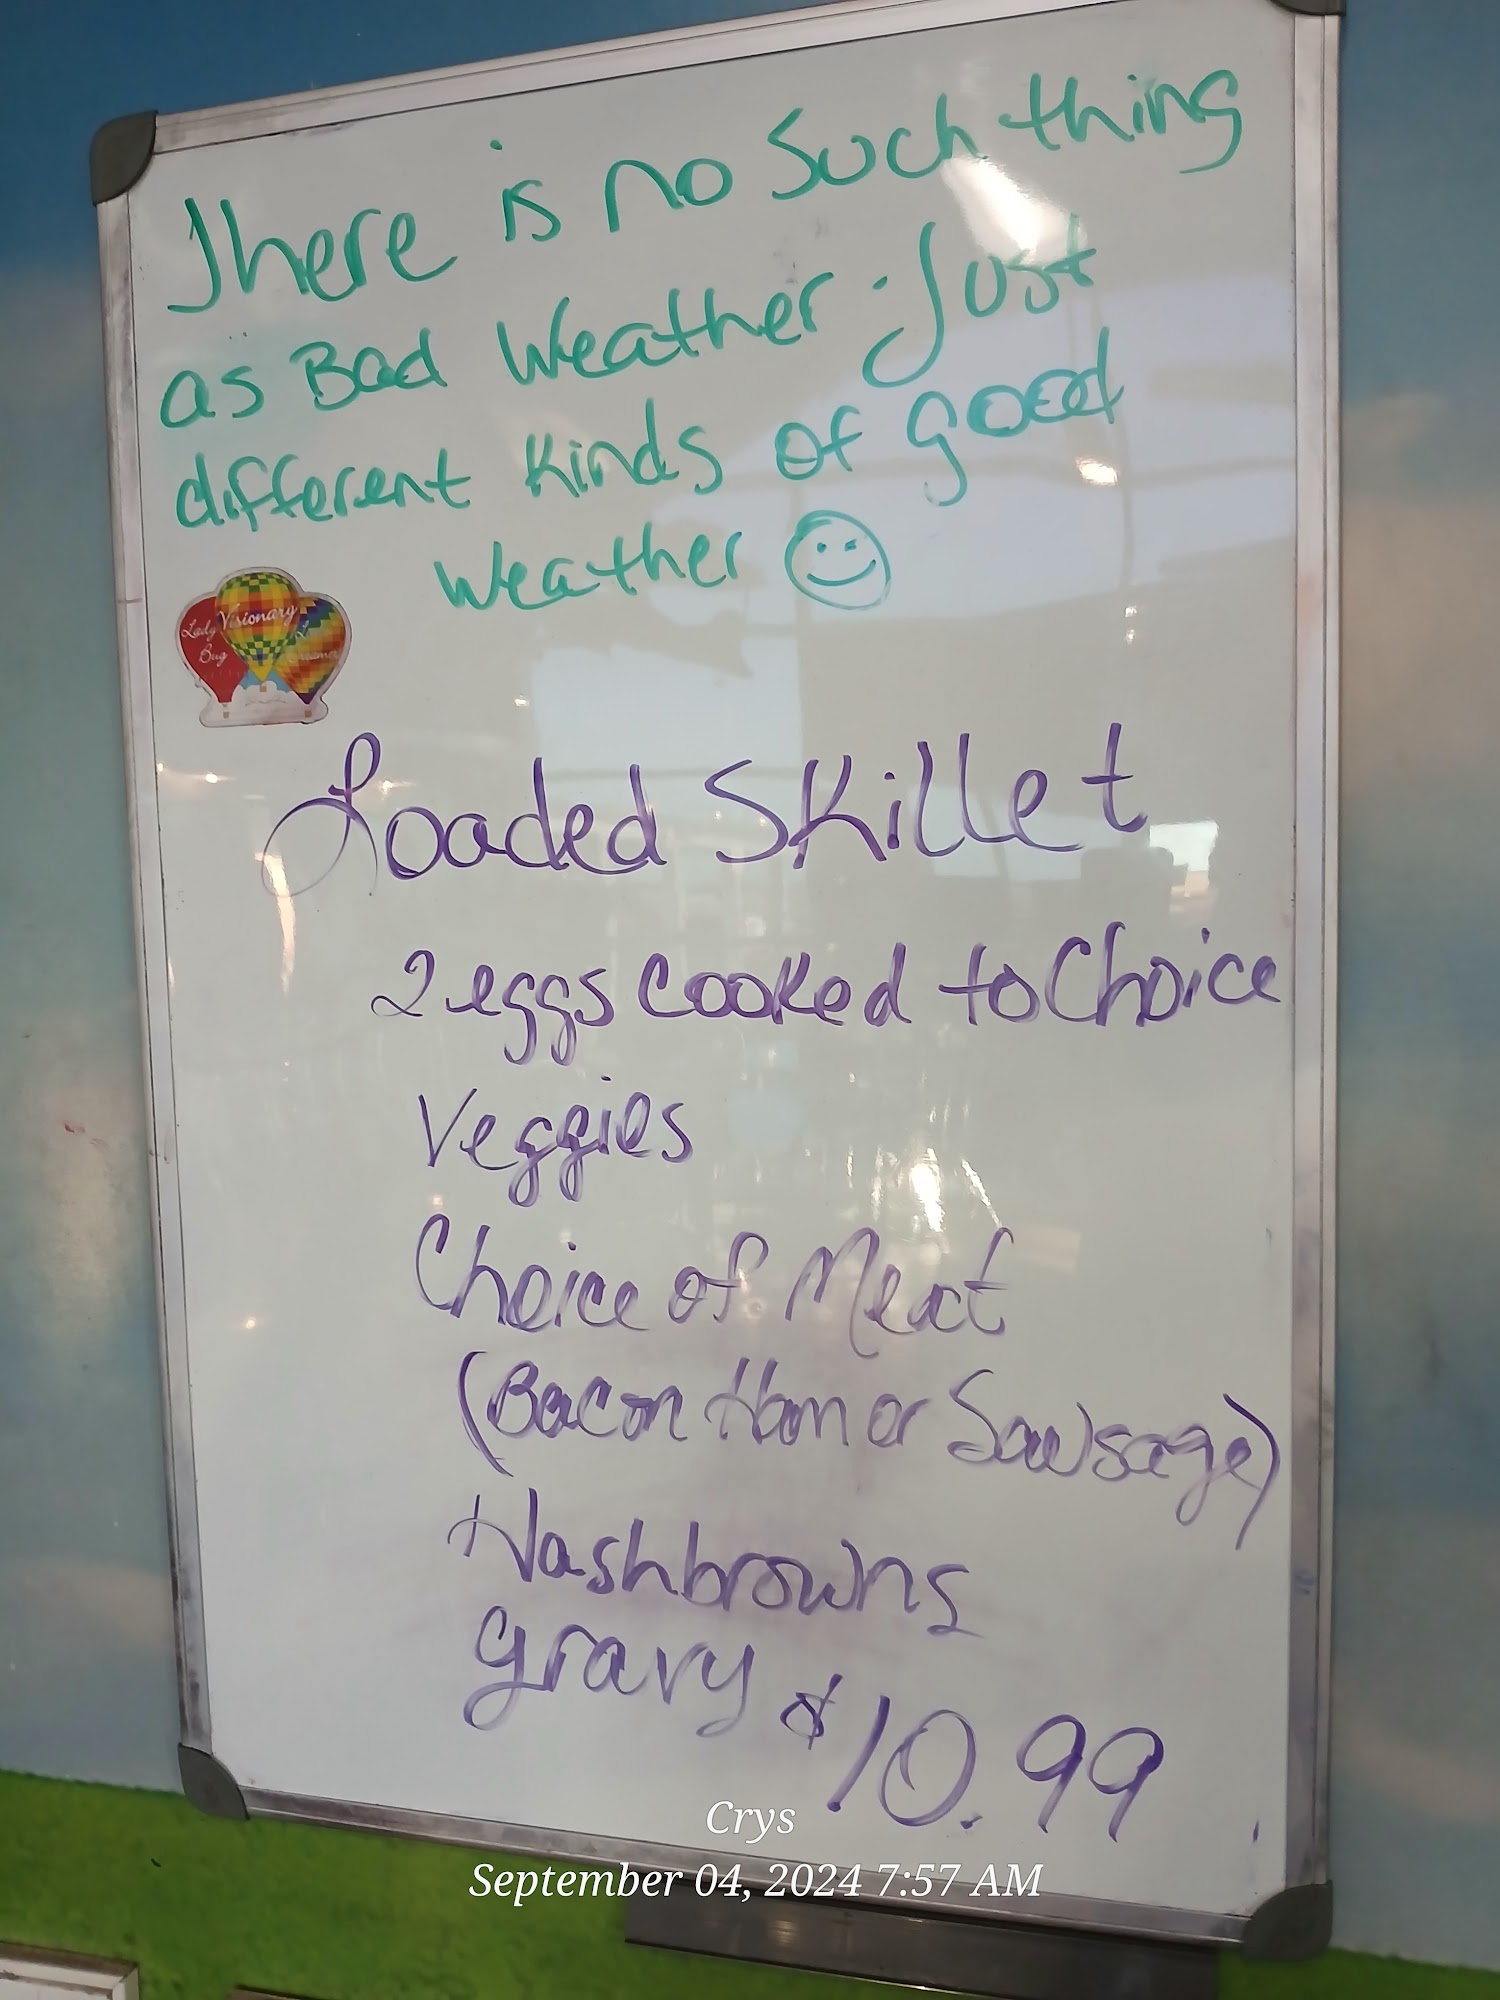 There is no such thing
as Bad Weather. Just
different kinds of good
weather
Lady
Bug
Visionary
Loaded Skillet
2 eggs cooked to Choice
Veggies
Choice of Meat
(Bacon Ham or Sawsage)
Hashbrowns
gravy $10.99
Crys
September 04, 2024 7:57 AM